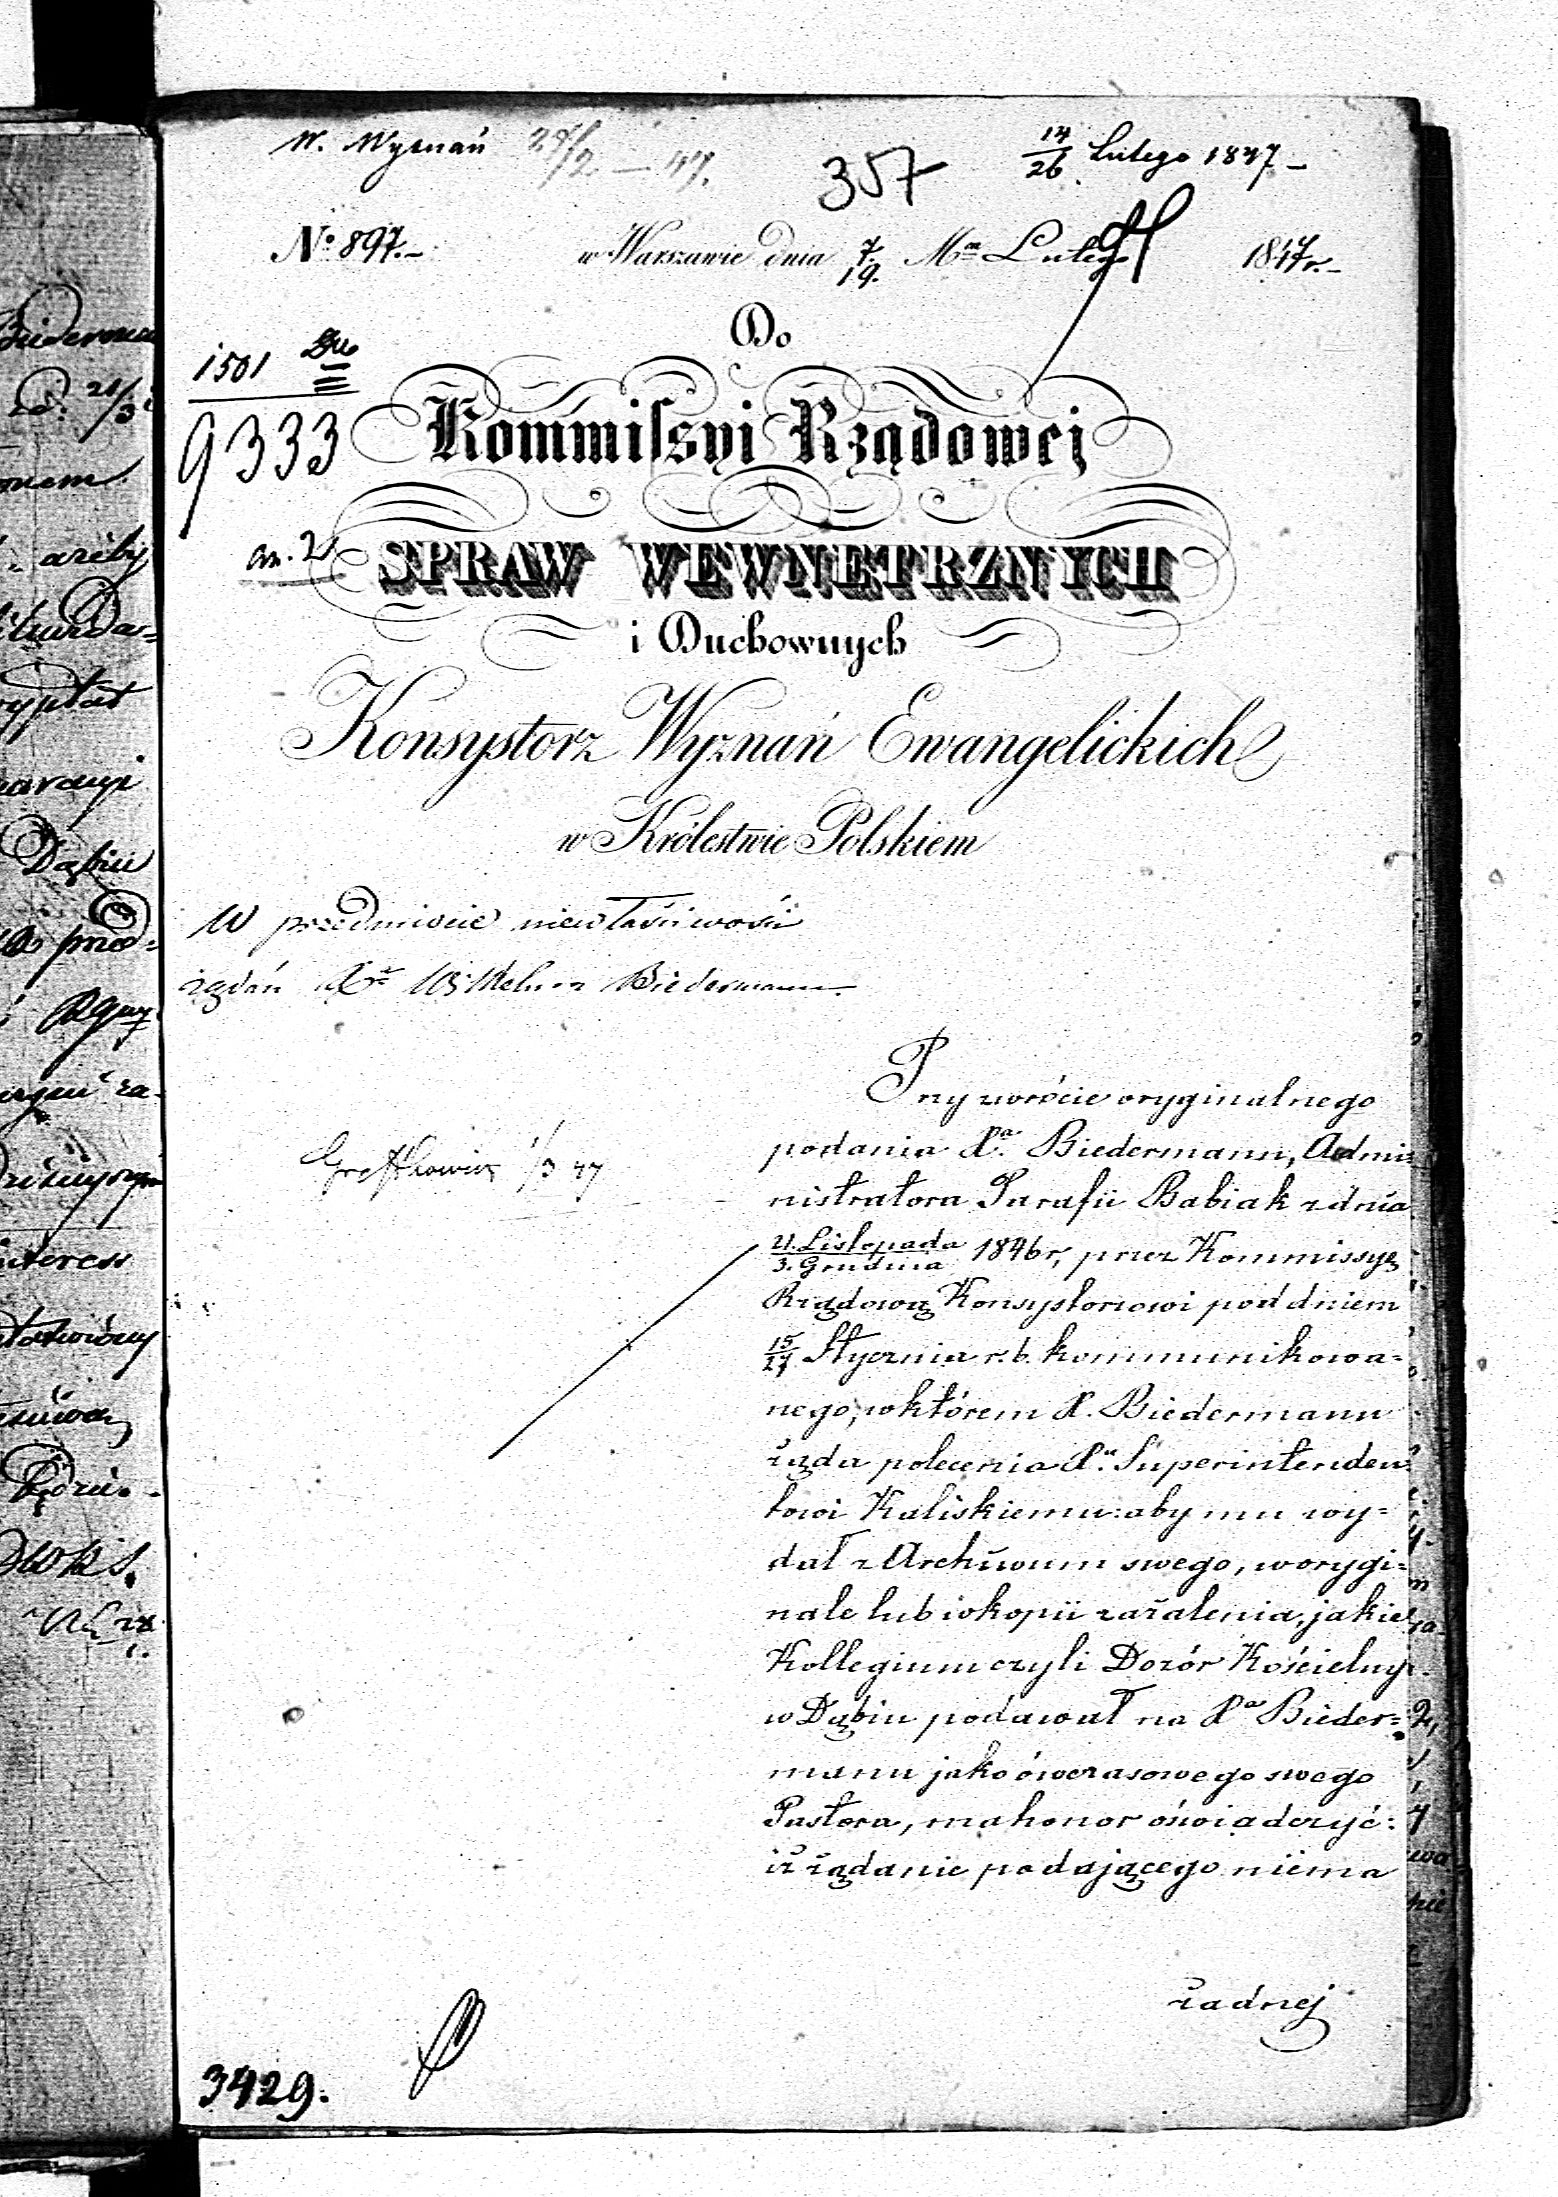 W. Wyznań 24/2 — 47.
357
14/26 Lutego 1847 –
No 897. –
w Warszawie dnia 7./19. Ma Lutego 1847 r. –
Do
1501
Kommissyi Rządowej
9333
an. 2
SPRAW WEWNĘTRZNYCH
i Duchownych
Konsystorz Wyznań Ewangelickich
w Królestwie Polskiem
W przedmiocie niewłaściwości
żądań Xa Wilhelma Biedermann.
Przy zwrócie oryginalnego
podania Xa. Biedermann, Admi=
nistratora Parafii Babiak z dnia
21. Listopada/3. Grudnia 1846 r, przez Kommissyę
Rządową Konsystorzowi pod dniem
15/27 Stycznia r. b. kommunikowa=
nego, w którem X. Biedermann
żąda polecenia Xu. Superintenden=
towi Kaliskiemu: aby mu wy=
dał z Archiwum swego, w orygi=
nale lub w kopii zażalenia, jakie
Kollegium czyli Dozór Kościelny
w Dąbiu podawał na Xa Bieder=
mann jako ówczasowego swego
Pastora, ma honor oświadczyć:
iż żądanie podającego niema
żadnej
3429.